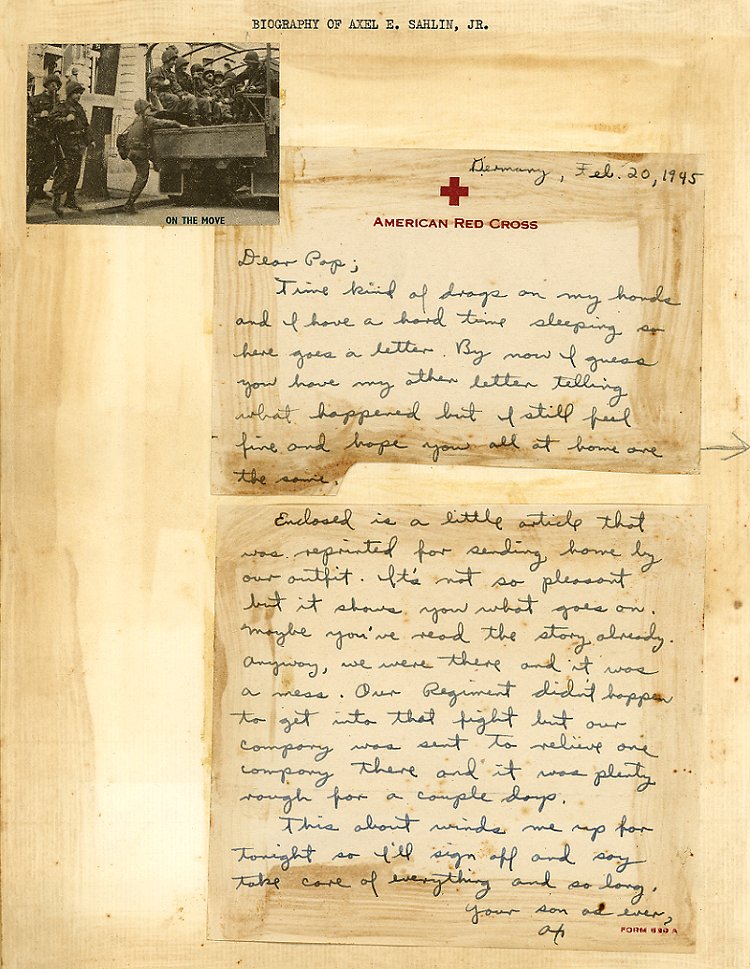 BIOGRAPHY OF AXEL E. SAHLIN, JR.
ON THE MOVE
Germany, Feb. 20, 1945
AMERICAN RED CROSS
Dear Pop;
Time kind of drags on my hands
and I have a hard time sleeping so
here goes a letter. By now I guess
you have my other letter telling
what happened but I still feel
fine and hope you all at home are
the same.
Enclosed is a little article that
was reprinted for sending home by
our outfit. It's not so pleasant
but it shows you what goes on.
Maybe you've read the story already.
Anyway, we were there and it was
a mess. Our Regiment didn't happen
to get into that fight but our
company was sent to relieve one
company there and it was plenty
rough for a couple days.
This about winds me up for
tonight so I'll sign off and say
take care of everything and so long.
Your son as ever,
Ax
FORM 690 A